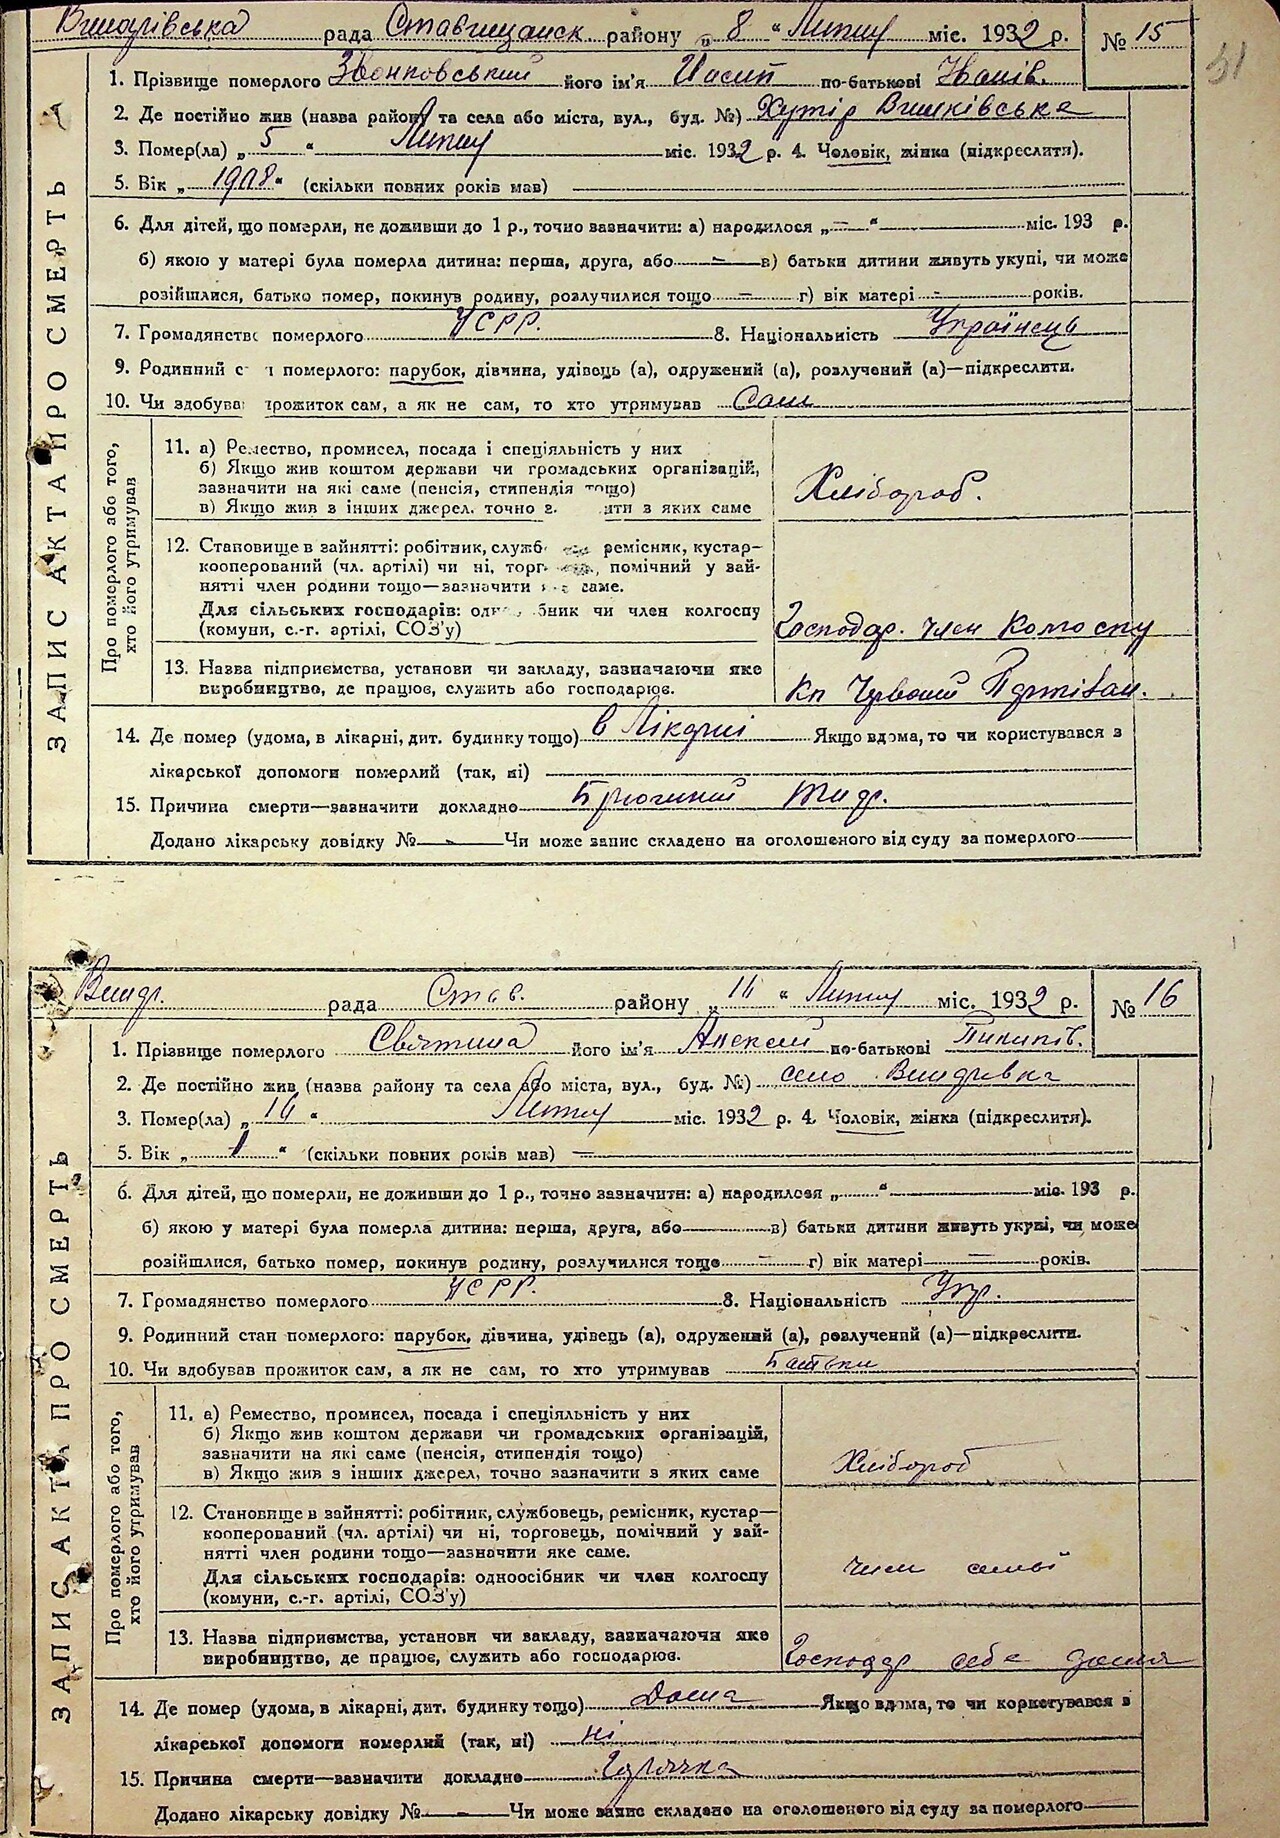 рада Ставищанск. району „ 8 “ Липня міс. 1932 р. № 15
51
ЗАПИС АКТА ПРО СМЕРТЬ
1. Прізвище померлого Звонковський його ім'я по-батькові Іванів.
2. Де постійно жив (назва району та села або міста, вул., буд. №) Хутір
3. Помер(ла) „ 5 “ Липня міс. 1932 р. 4. Чоловік, жінка (підкреслити).
5. Вік „ 1908 “ (скільки повних років мав)
6. Для дітей, що померли, не доживши до 1 р., точно зазначити: а) народилося „ — “ міс. 193 р.
б) якою у матері була померла дитина: перша, друга, або — в) батьки дитини живуть укупі, чи може
розійшлися, батько помер, покинув родину, розлучилися тощо — г) вік матері - років.
7. Громадянство померлого УСРР. 8. Національність Українець
9. Родинний с н померлого: парубок, дівчина, удівець (а), одружений (а), розлучений (а)—підкреслити.
10. Чи здобував прожиток сам, а як не сам, то хто утримував Сам
Про померлого або того,
хто його утримував
11. а) Ремество, промисел, посада і спеціяльність у них
б) Якщо жив коштом держави чи громадських організацій,
зазначити на які саме (пенсія, стипендія тощо)
в) Якщо жив з інших джерел, точно з ити з яких саме
Хлібороб.
12. Становище в зайнятті: робітник, служб ремісник, кустар—
кооперований (чл. артілі) чи ні, торг помічний у зай-
нятті член родини тощо—зазначити саме.
Для сільських господарів: одно бник чи член колгоспу
(комуни, с.-г. артілі, СОЗ'у)
Господар. член Колгоспу
13. Назва підприємства, установи чи закладу, зазначаючи яке
виробництво, де працює, служить або господарює.
Червоний Партізан.
14. Де помер (удома, в лікарні, дит. будинку тощо) в Лікарні Якщо вдома, то чи користувався з
лікарської допомоги померлий (так, ні)
15. Причина смерти—зазначити докладно Брюшний тиф.
Додано лікарську довідку № - Чи може запис складено на оголошеного від суду за померлого
рада Став. району „ 14 “ Липня міс. 1932 р. № 16
ЗАПИС АКТА ПРО СМЕРТЬ
1. Прізвище померлого Святина його ім'я Алексей по-батькові
2. Де постійно жив (назва району та села або міста, вул., буд. №) село
3. Помер(ла) „ 14 “ Липня міс. 1932 р. 4. Чоловік, жінка (підкреслити).
5. Вік „ 1 “ (скільки повних років мав) —
6. Для дітей, що померли, не доживши до 1 р., точно зазначити: а) народилося „ “ міс. 193 р.
б) якою у матері була померла дитина: перша, друга, або в) батьки дитини живуть укупі, чи може
розійшлися, батько помер, покинув родину, розлучилися тощо — г) вік матері — років.
7. Громадянство померлого УСРР. 8. Національність Укр.
9. Родинний стан померлого: парубок, дівчина, удівець (а), одружений (а), розлучений (а)—підкреслити.
10. Чи здобував прожиток сам, а як не сам, то хто утримував Батьки
Про померлого або того,
хто його утримував
11. а) Ремество, промисел, посада і спеціяльність у них
б) Якщо жив коштом держави чи громадських організацій,
зазначити на які саме (пенсія, стипендія тощо)
в) Якщо жив з інших джерел, точно зазначити з яких саме
Хлібороб
12. Становище в зайнятті: робітник, службовець, ремісник, кустар—
кооперований (чл. артілі) чи ні, торговець, помічний у зай-
нятті член родини тощо—зазначити яке саме.
Для сільських господарів: одноосібник чи член колгоспу
(комуни, с.-г. артілі, СОЗ'у)
член семьї
13. Назва підприємства, установи чи закладу, зазначаючи яке
виробництво, де працює, служить або господарює.
Господар себе дома
14. Де помер (удома, в лікарні, дит. будинку тощо) Дома Якщо вдома, то чи користувався з
лікарської допомоги померлий (так, ні) ні
15. Причина смерти—зазначити докладно Горячка
Додано лікарську довідку № - Чи може запис складено на оголошеного від суду за померлого